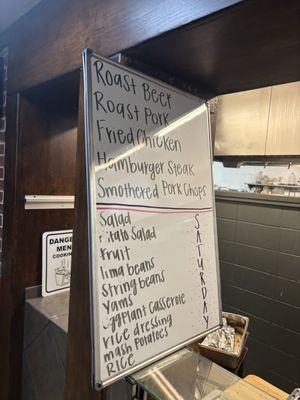 Roast Beef
Roast Pork
Fried Chicken
Hamburger Steak
Smothered Pork Chops
Salad
Potato Salad
Fruit
lima beans
String beans
Yams
Eggplant Casserole
rice dressing
mash Potatoes
RICE
SATURDAY
DANGE
MEN
COOKING